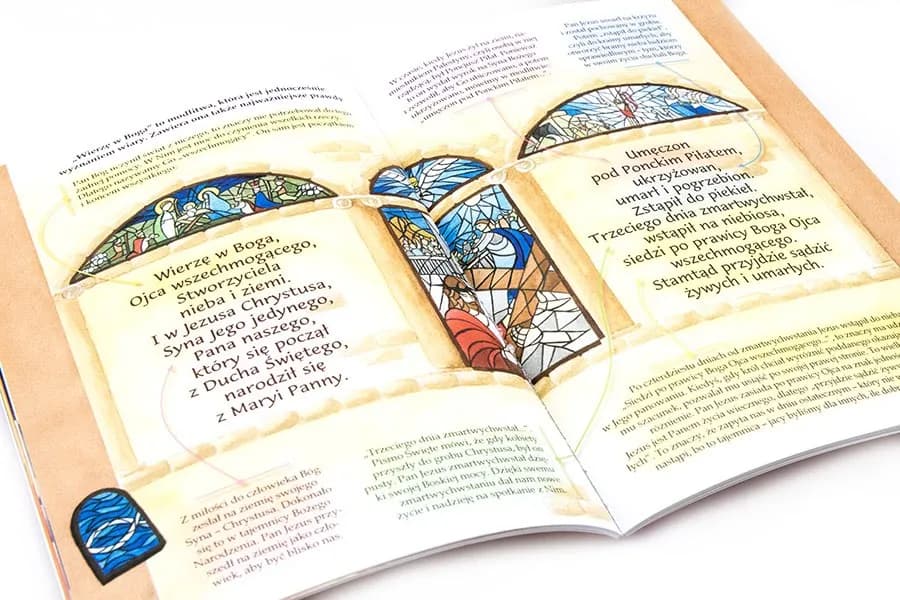 „Wierzę w Boga” to modlitwa, która jest jednocześnie
wyznaniem wiary. Zawiera ona także najważniejsze prawdy
Pan Bóg uczynił świat z niczego, to znaczy nie potrzebował do tego
żadnej pomocy. W Nim jest moc do czynienia wszelkich rzeczy.
Dlatego nazywamy Go „wszechmogący”. On sam jest początkiem
i końcem wszystkiego.
Wierzę w Boga,
Ojca wszechmogącego,
Stworzyciela
nieba i ziemi.
I w Jezusa Chrystusa,
Syna Jego jedynego,
Pana naszego,
który się począł
z Ducha Świętego,
narodził się
z Maryi Panny.
Z miłości do człowieka Bóg
zesłał na ziemię swojego
Syna – Chrystusa. Dokonało
się to w tajemnicy Bożego
Narodzenia. Pan Jezus przy-
szedł na ziemię jako czło-
wiek, aby być blisko nas.
„Trzeciego dnia zmartwychwstał”.
Pismo Święte mówi, że gdy kobiety
przyszły do grobu Chrystusa, był on
pusty. Pan Jezus zmartwychwstał dzię-
ki swojej Boskiej mocy. Dzięki swemu
zmartwychwstaniu dał nam nowe
życie i nadzieję na spotkanie z Nim.
W czasie, kiedy Jezus żył na ziemi, na-
miestnikiem Palestyny, czyli osobą w niej
rządzącą był Poncjusz Piłat. Ponieważ
to on wydał wyrok na Syna Bożego
i pozwolił, aby Go ubiczowano, a potem
ukrzyżowano, mówimy w modlitwie:
„umęczon pod Ponckim Piłatem”.
Pan Jezus umarł na krzyżu
i został pochowany w grobie.
Potem „zstąpił do piekieł”,
czyli do krainy umarłych, aby
otworzyć bramy nieba ludziom
sprawiedliwym – tym, którzy
w swoim życiu słuchali Boga.
Umęczon
pod Ponckim Piłatem,
ukrzyżowan,
umarł i pogrzebion.
Zstąpił do piekieł.
Trzeciego dnia zmartwychwstał,
wstąpił na niebiosa,
siedzi po prawicy Boga Ojca
wszechmogącego.
Stamtąd przyjdzie sądzić
żywych i umarłych.
Po czterdziestu dniach od zmartwychwstania Jezus wstąpił do nieba
„Siedzi po prawicy Boga Ojca wszechmogącego”, to znaczy ma udział
w Jego panowaniu. Kiedyś, gdy król chciał wyróżnić poddanego okazując
mu szacunek, pozwalał mu usiąść po swojej prawej stronie. To wielkie
Pan Jezus zasiada po prawicy Ojca na znak
Jezus jest Panem życia wiecznego, dlatego „przyjdzie sądzić żywych
łych”. To znaczy, że zapyta nas w dniu ostatecznym – który nie
nastąpi, bo to tajemnica – jacy byliśmy dla innych, ile dobra